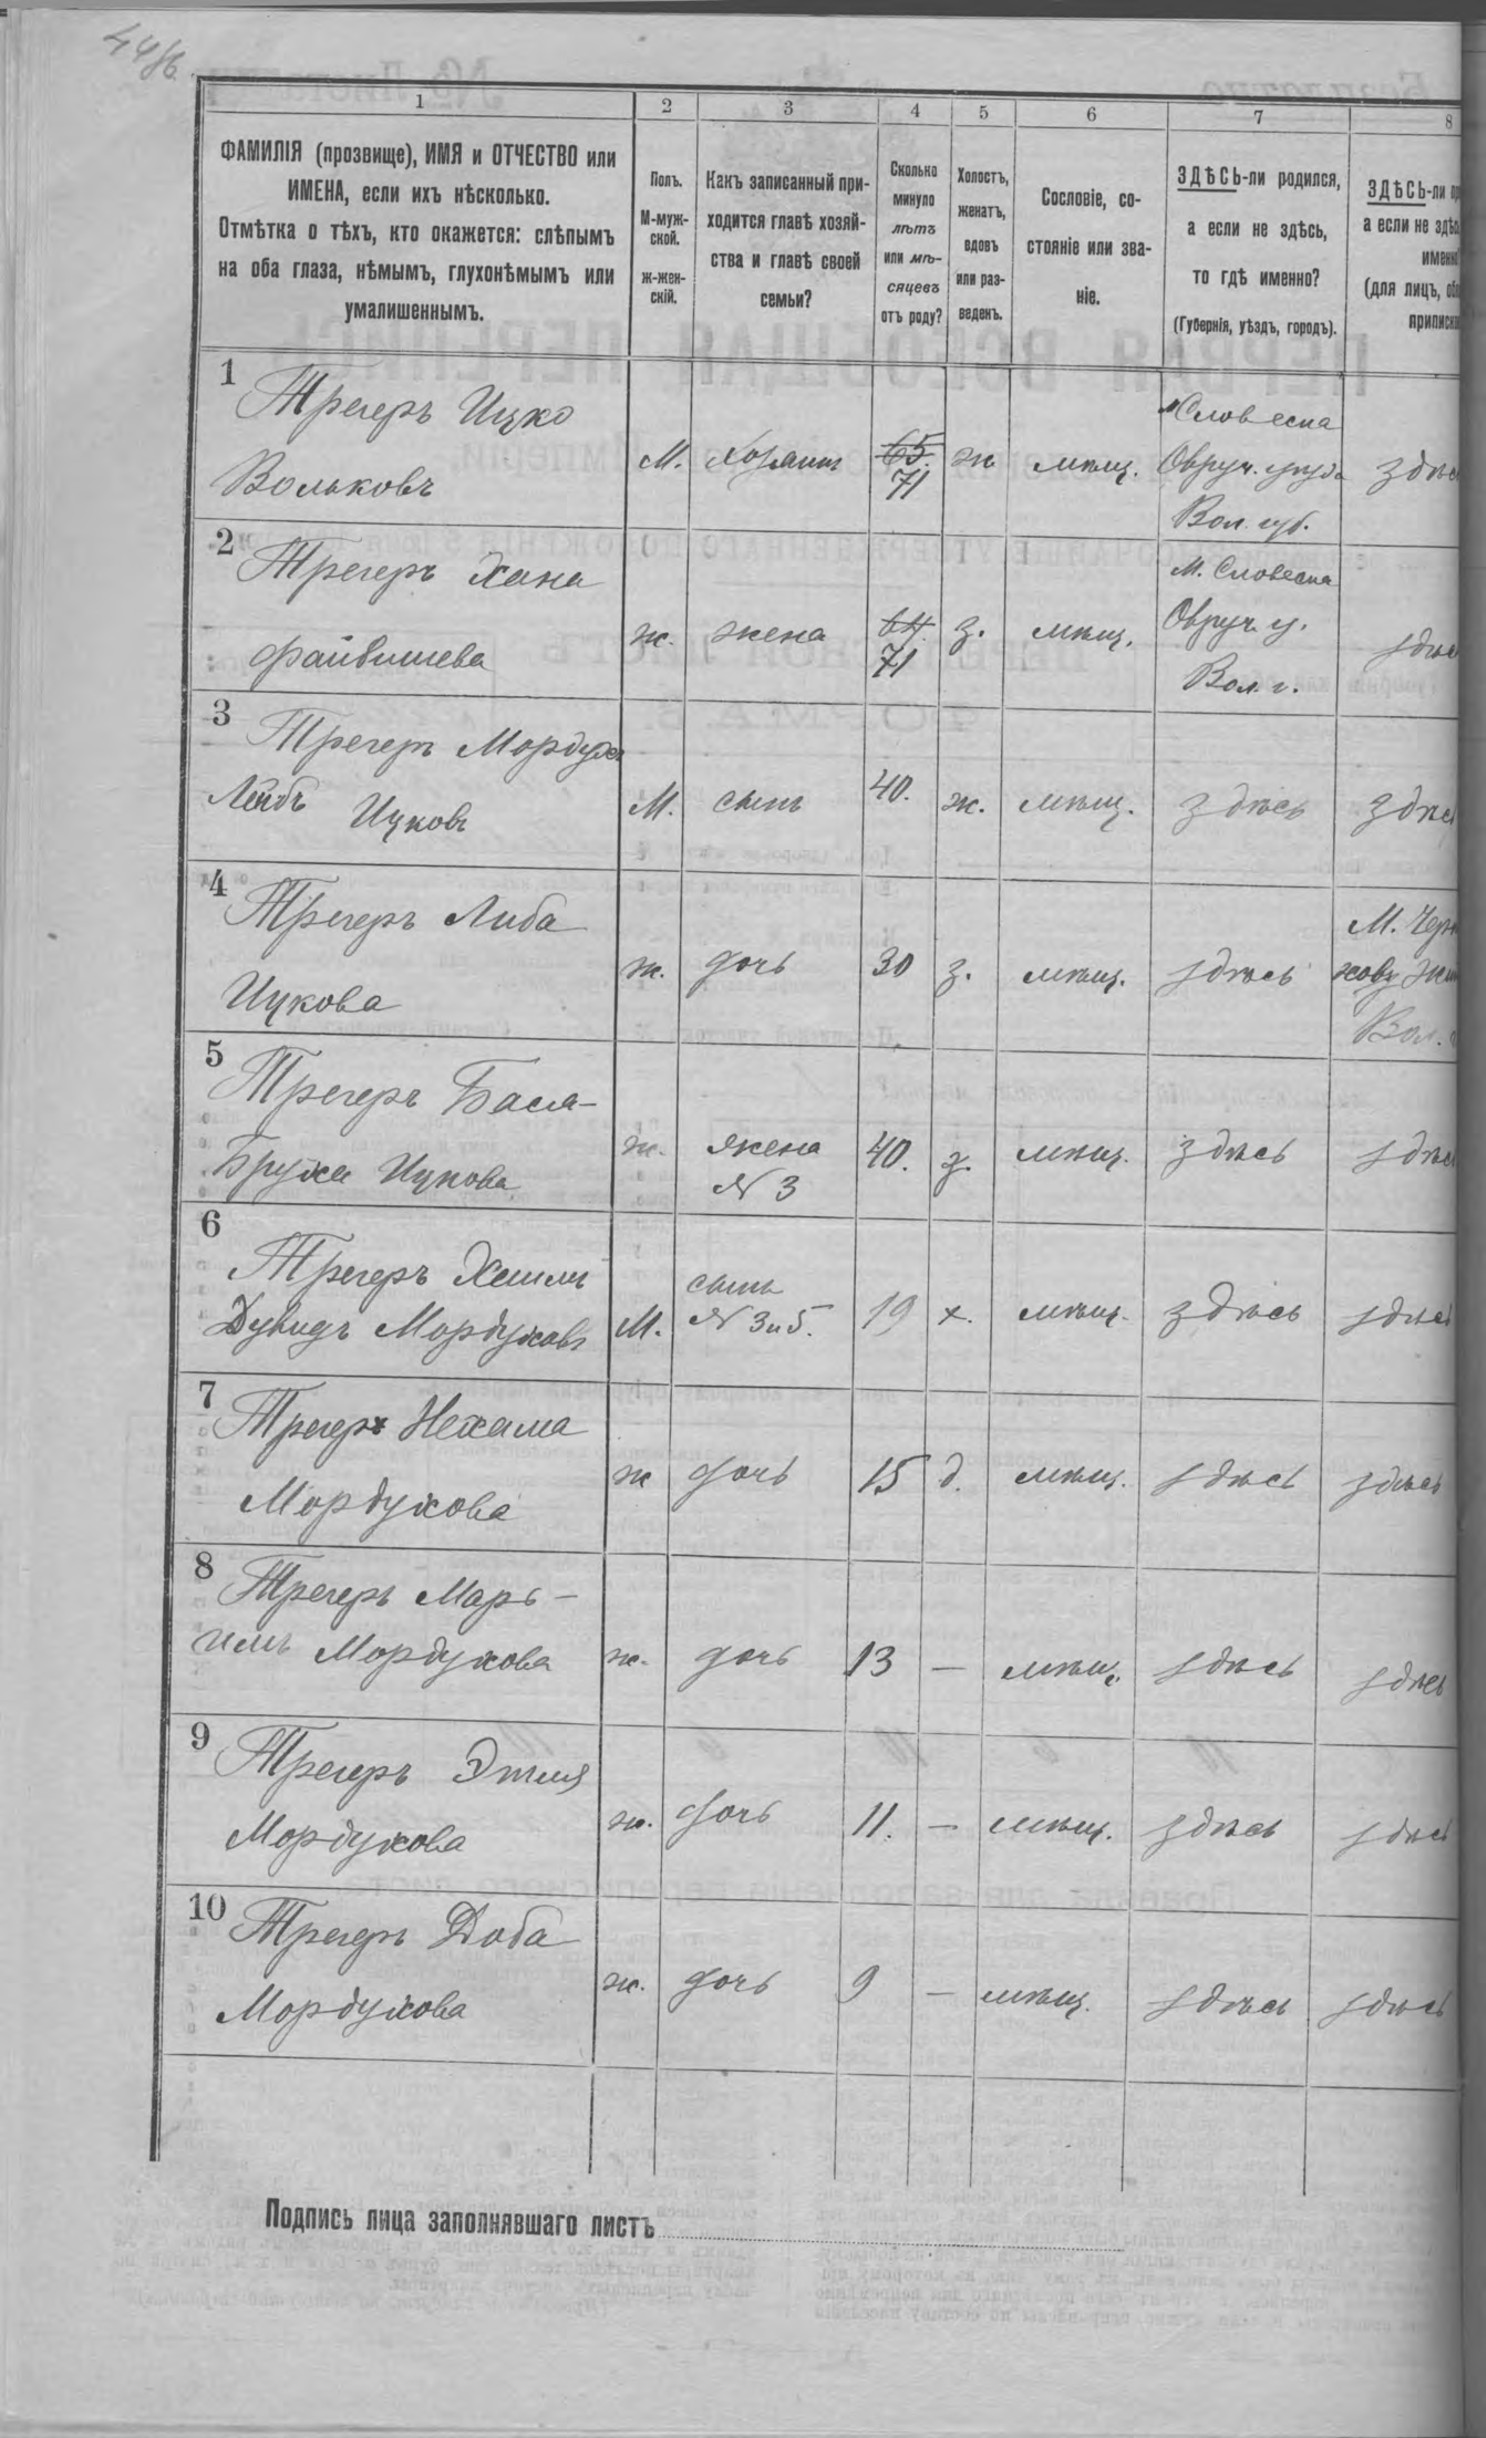 1 2 3 4 5 6 7 8
ФАМИЛІЯ (прозвище), ИМЯ и ОТЧЕСТВО или
ИМЕНА, если ихъ нѣсколько.
Отмѣтка о тѣхъ, кто окажется: слѣпымъ
на оба глаза, нѣмымъ, глухонѣмымъ или
умалишеннымъ.
Полъ.
М-муж-
ской.
ж-жен-
скій.
Какъ записанный при-
ходится главѣ хозяй-
ства и главѣ своей
семьи?
Сколько
минуло
лѣтъ
или мѣ-
сяцевъ
отъ роду?
Холостъ,
женатъ,
вдовъ
или раз-
веденъ.
Сословіе, со-
стояніе или зва-
ніе.
ЗДѢСЬ-ли родился,
а если не здѣсь,
то гдѣ именно?
(Губернія, уѣздъ, городъ).
ЗДѢСЬ-ли пр
а если не здѣс
именно
(для лицъ, обя
приписк
1
Трегеръ Ицко
Вольковъ
М. Хозяинъ 65. 71 ж мѣщ.
Словесна
Овруч. уѣзда
Вол. губ.
здѣс
2
Трегеръ Хана
Файвишева
ж. жена 64. 71 з. мѣщ.
М. Словесна
Овруч. у.
Вол. г.
здѣс
3
Трегеръ Мордух
Лейбъ Ицковъ
М. сынъ 40. ж. мѣщ. здѣсь здѣс
4
Трегеръ Либа
Ицкова
ж. дочь 30 з. мѣщ. здѣсь
М. Черн
Вол.
5
Трегеръ Бася-
Бруха Ицкова
ж. жена
N 3
40. з. мѣщ. здѣсь здѣс
6
Трегеръ Хаимъ
Дувидъ Мордуховъ
М. сынъ
N 3 и 5.
19 х. мѣщ. здѣсь здѣсь
7
Трегеръ Нехама
Мордухова
ж дочь 15 д. мѣщ. здѣсь здѣсь
8
Трегеръ Марь-
Мордухова
ж. дочь 13 — мѣщ. здѣсь здѣсь
9
Трегеръ Этля
Мордухова
ж. дочь 11. — мѣщ. здѣсь здѣсь
10
Трегеръ Доба
Мордухова
ж. дочь 9 — мѣщ. здѣсь здѣсь
Подпись лица заполнявшаго листъ